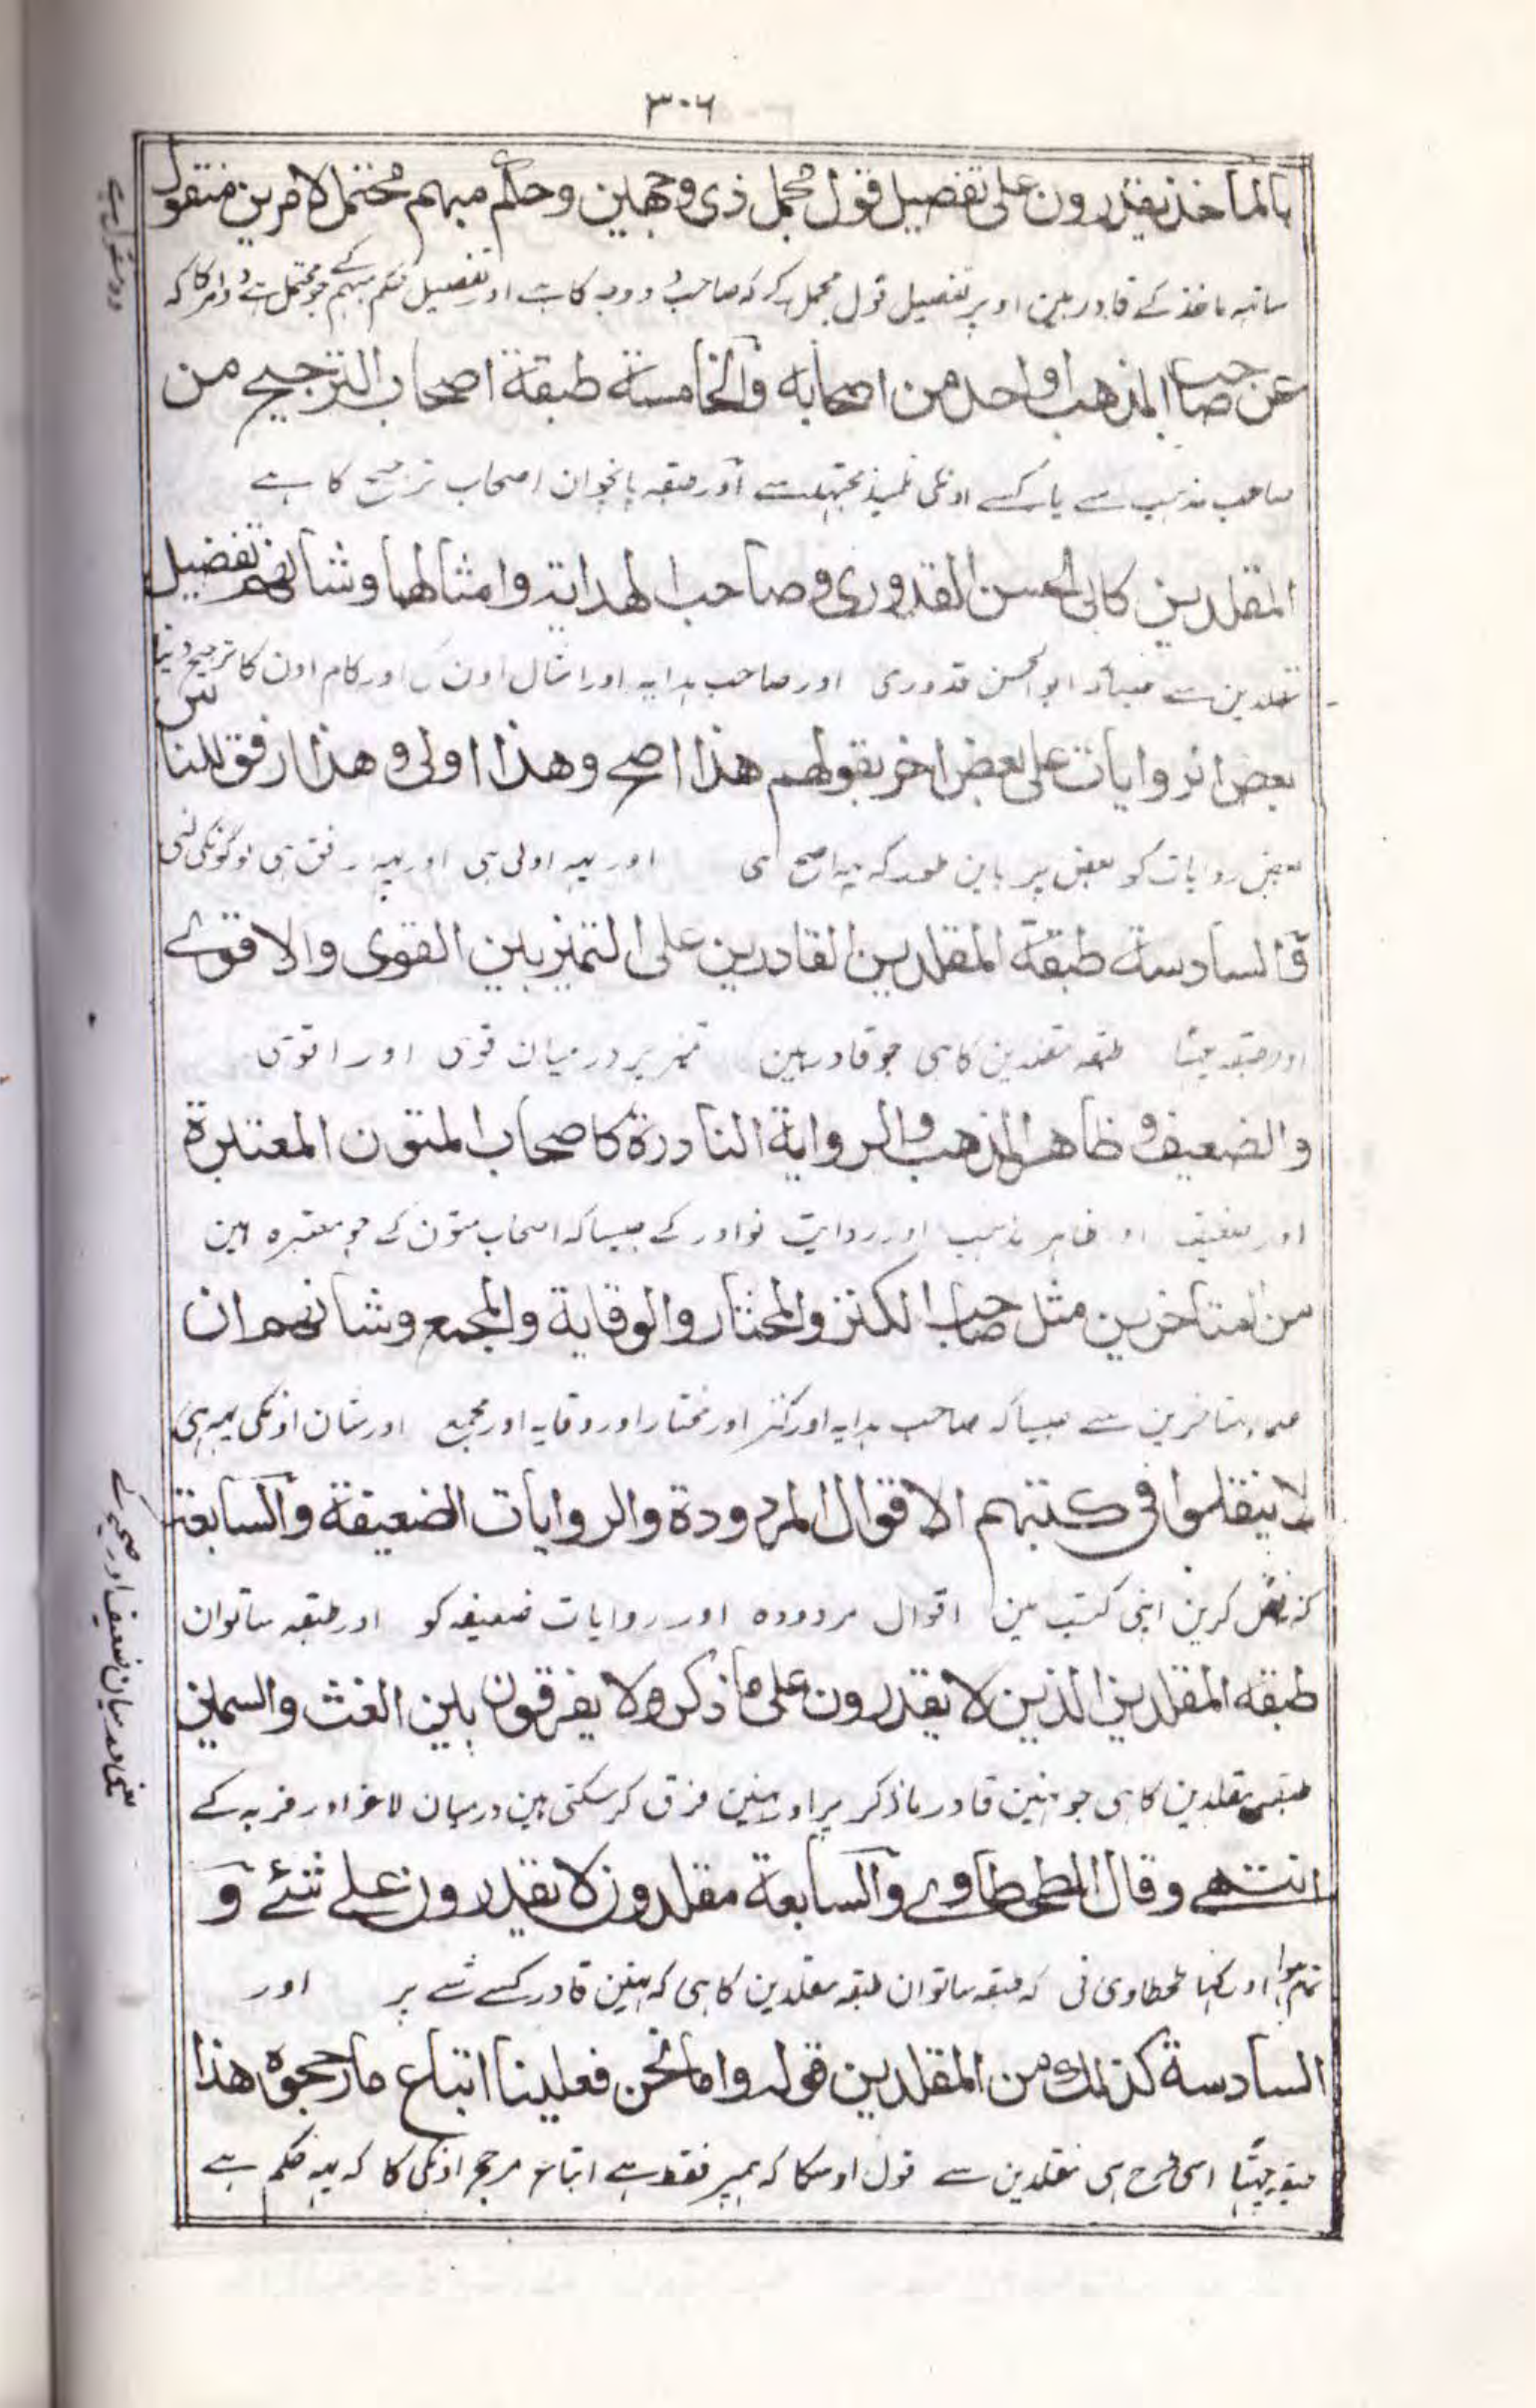 ٣٠٦
بالماخذ يقدرون على تفصيل قول مجمل ذي وجهين وحكم مبهم محتمل لامرين منقول
ساتہہ ماخذ کے قادر ہین اوپر تفصیل قول مجمل کے کہ صاحب دو وجہ کا ہے اور تفصیل حکم مبہم کے جو محتمل ہے دو امر کا کہ
عن صاحب المذهب او واحد من اصحابه والخامسة طبقة اصحاب الترجيح من
صاحب مذہب سے یا کسے اونکی تلمیذ مجتہد سے اور طبقہ پانچوان اصحاب ترجیح کا ہے
المقلدين كابي الحسن القدوري وصاحب الهداية وامثالهما وشانهم تفضيل
مقلدین سے جیساکہ ابو الحسن قدوری اور صاحب ہدایہ اور امثال اون کی اور کام اون کا ترجیح دینا
بعض الروايات على بعض اخر بقولهم هذا اصح وهذا اولى وهذا ارفق للناس
بعض روایات کو بعض پر باین طور کہ یہہ اصح ہی اور یہہ اولی ہی اور یہہ ارفق ہی لوگونکی لئی
والسادسة طبقة المقلدين القادرين على التميز بين القوى والاقوى
اور طبقہ چہٹا طبقہ مقلدین کا ہی جو قادر ہین تمیز پر درمیان قوی اور اقوی
والضعيف وظاهر المذهب والرواية النادرة كاصحاب المتون المعتبرة
اور ضعیف اور ظاہر مذہب اور روایت نوادر کے جیساکہ اصحاب متون کے جو معتبرہ ہین
من المتاخرين مثل صاحب الكنز والمختار والوقاية والمجمع وشانهم ان
علماء متاخرین سے جیساکہ صاحب ہدایہ اور کنز اور مختار اور وقایہ اور مجمع اور شان اونکی یہہ ہی
لا ينقلوا في كتبهم الاقوال المردودة والروايات الضعيفة والسابعة
کہ نہ نقل کرین اپنی کتب مین اقوال مردودہ اور روایات ضعیفہ کو اور طبقہ ساتوان
طبقه المقلدين الذين لا يقدرون على ما ذكر ولا يفرقون بين الغث والسمين
طبقہ مقلدین کا ہی جو نہین قادر ماذکر پر اور نہین فرق کر سکتی ہین درمیان لاغر اور فربہ کے
انتهے وقال الطحطاوے والسابعة مقلدون لا يقدرون علے شئے و
تمام ہوا اور کہا طحطاوی نی کہ طبقہ ساتوان طبقہ مقلدین کا ہی کہ نہین قادر کسے شے پر اور
السادسة كذلك من المقلدين قوله واما نحن فعلينا اتباع ما رجحوه هذا
طبقہ چہٹا اسی طرح ہی مقلدین سے قول اوسکا کہ ہمپر فقط ہے اتباع مرجح اونکی کا کہ یہہ حکم ہے
یعنی درمیان ضعیف اور صحیح کے